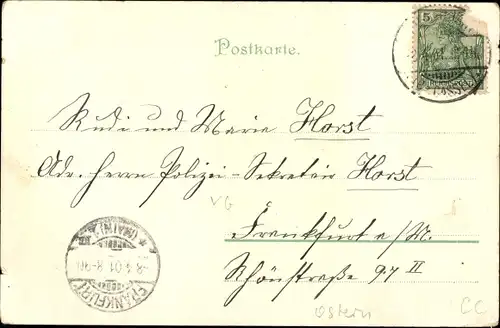 Postkarte.
5
Rudi und Marie Horst
Adr. Herrn Polizei-Sekretär Horst
VG
Frankfurt a/M.
Schönstraße 97 II
FRANKFURT
(MAIN)
8.4.01.8-9N.
Ostern
CC